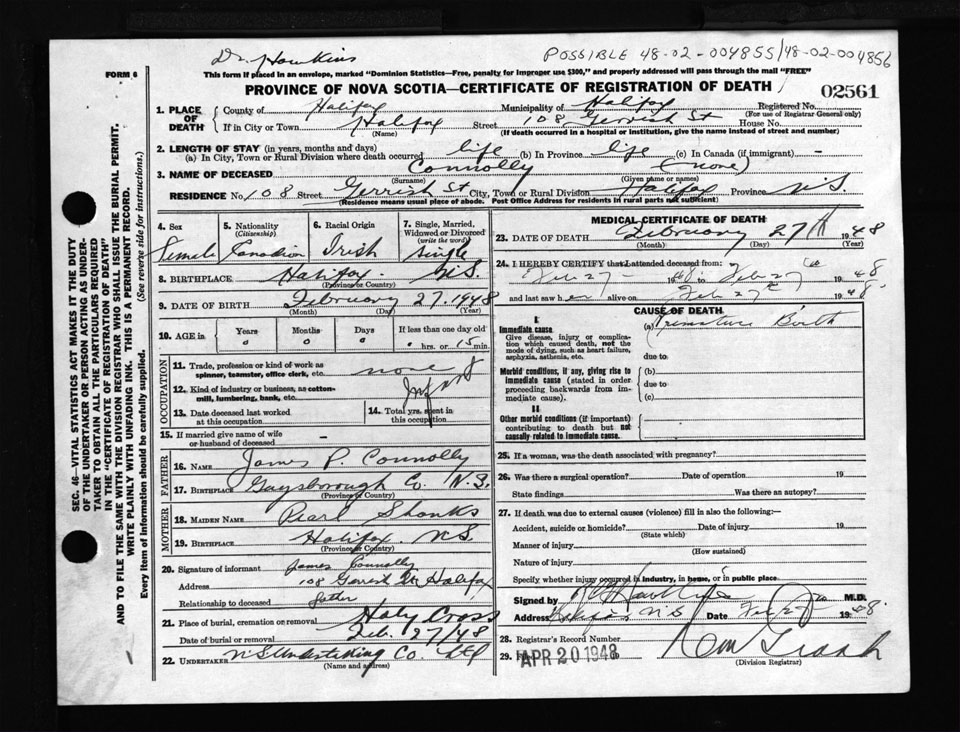 Dr. Hawkins
POSSIBLE 48-02-004855/48-02-004856
FORM 6
This form if placed in an envelope, marked "Dominion Statistics—Free, penalty for improper use $300," and properly addressed will pass through the mail "FREE"
PROVINCE OF NOVA SCOTIA—CERTIFICATE OF REGISTRATION OF DEATH
02561
1. PLACE OF DEATH
County of Halifax Municipality of Halifax Registered No.
(For use of Registrar General only)
If in City or Town Halifax Street 108 Gerrish St House No.
(Name) (If death occurred in a hospital or institution, give the name instead of street and number)
2. LENGTH OF STAY (in years, months and days)
(a) In City, Town or Rural Division where death occurred life (b) In Province life (c) In Canada (if immigrant) —
3. NAME OF DECEASED Connolly (none)
(Surname) (Given name or names)
RESIDENCE No. 108 Street Gerrish St City, Town or Rural Division Halifax Province N.S.
(Residence means usual place of abode. Post Office Address for residents in rural parts not sufficient)
4. Sex Female
5. Nationality (Citizenship) Canadian
6. Racial Origin Irish
7. Single, Married, Widowed or Divorced (write the word) Single
8. BIRTHPLACE Halifax. N.S.
(Province or Country)
9. DATE OF BIRTH February 27. 1948
(Month) (Day) (Year)
10. AGE in Years 0 Months 0 Days 0 If less than one day old 0 hrs. or 15 min.
OCCUPATION
11. Trade, profession or kind of work as spinner, teamster, office clerk, etc. none
12. Kind of industry or business, as cotton-mill, lumbering, bank, etc. Infant
13. Date deceased last worked at this occupation
14. Total yrs. spent in this occupation
15. If married give name of wife or husband of deceased —
FATHER
16. NAME James P. Connolly
17. BIRTHPLACE Guysborough Co. N.S.
(Province or Country)
MOTHER
18. MAIDEN NAME Pearl Shanks
19. BIRTHPLACE Halifax. N.S.
(Province or Country)
20. Signature of informant James Connolly
Address 108 Gerrish St Halifax
Relationship to deceased father
21. Place of burial, cremation or removal Holy Cross
Date of burial or removal Feb. 27/48
22. UNDERTAKER N.S. Undertaking Co. Ltd
(Name and address)
MEDICAL CERTIFICATE OF DEATH
23. DATE OF DEATH February 27th 1948
(Month) (Day) (Year)
24. I HEREBY CERTIFY that I attended deceased from:
Feb 27 1948 to Feb 27th 1948
and last saw her alive on Feb 27th 1948.
CAUSE OF DEATH
I
Immediate cause. (a) Premature Birth
Give disease, injury or complication which caused death, not the mode of dying, such as heart failure, asphyxia, asthenia, etc.
due to
Morbid conditions, if any, giving rise to immediate cause (stated in order proceeding backwards from immediate cause).
(b)
due to
(c)
II
Other morbid conditions (if important) contributing to death but not causally related to immediate cause.
25. If a woman, was the death associated with pregnancy?
26. Was there a surgical operation? Date of operation 19
State findings Was there an autopsy?
27. If death was due to external causes (violence) fill in also the following:—
Accident, suicide or homicide? Date of injury 19
(State which)
Manner of injury
(How sustained)
Nature of injury
Specify whether injury occurred in industry, in home, or in public place
Signed by Hawkins M.D.
Address Halifax N S Date Feb 27 1948.
28. Registrar's Record Number
29. APR 20 1948
(Division Registrar)
SEC. 46—VITAL STATISTICS ACT MAKES IT THE DUTY
OF THE UNDERTAKER OR PERSON ACTING AS UNDER-
TAKER TO OBTAIN ALL THE PARTICULARS REQUIRED
IN THE "CERTIFICATE OF REGISTRATION OF DEATH"
AND TO FILE THE SAME WITH THE DIVISION REGISTRAR WHO SHALL ISSUE THE BURIAL PERMIT.
WRITE PLAINLY WITH UNFADING INK. THIS IS A PERMANENT RECORD.
Every item of information should be carefully supplied. (See reverse side for instructions.)